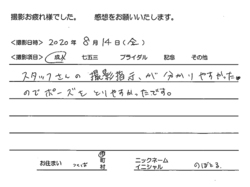 撮影お疲れ様でした。 感想をお願いいたします。
<撮影日時> 2020年 8月 14日(金)
<撮影項目> 成人 七五三 ブライダル 記念 その他
スタッフさんの撮影指示が分かりやすかった
のでポーズをとりやすかったです。
お住まい つくば 市 町 村 ニックネーム イニシャル のぼとる